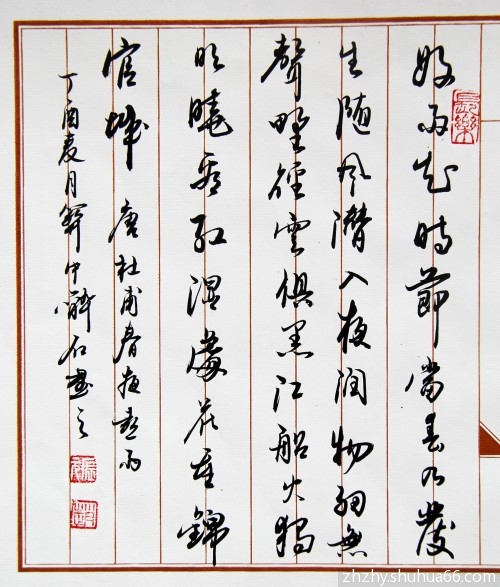 長樂
好雨知時節當春乃發
生随風潛入夜潤物細無
聲野徑雲俱黑江船火獨
明曉看紅濕處花重錦
官城 唐杜甫春夜喜雨
丁酉夏月中醉石書之
zhzhy.shuhua66.com